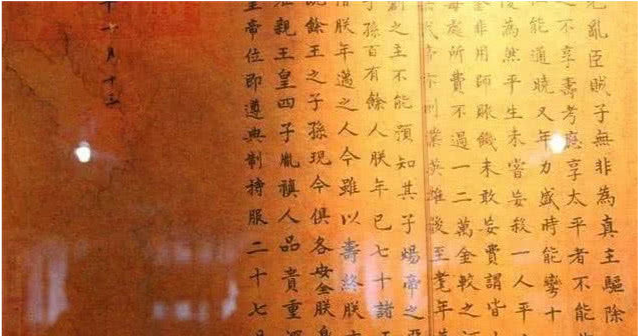 亂臣賊子無非為真主驅除
之不享壽考應享太平者不能
能通曉又年力盛時能彎十
後為然平生未嘗妄殺一人平
金非用師賑饑未敢妄費謂皆
每處所費不過一二萬金較之河
代帝亦刱業英雄後至耄年
創之主不能預知其子煬帝之惡
子孫百有餘人朕年已七十諸王
惜朕年邁之人今雖以壽終朕亦
況餘王之子孫現今俱各安全朕身
雍親王皇四子胤禛人品貴重深
皇帝位即遵典制持服二十七日
十一月十三